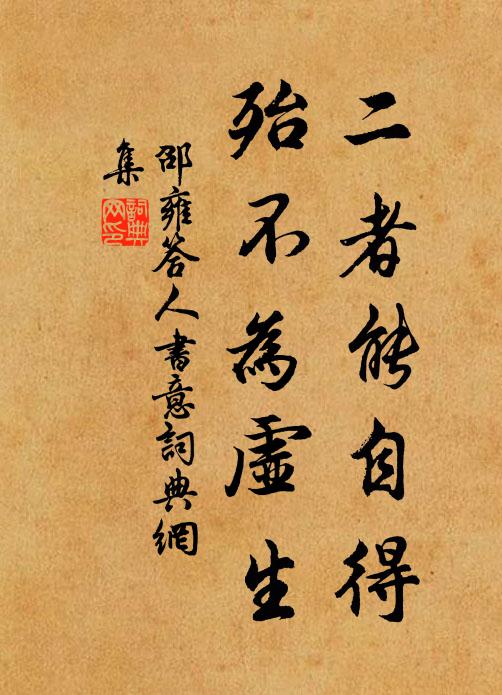 二者能自得
殆不為虛生
邵雍答人書意詞典網
集
詞典
网印